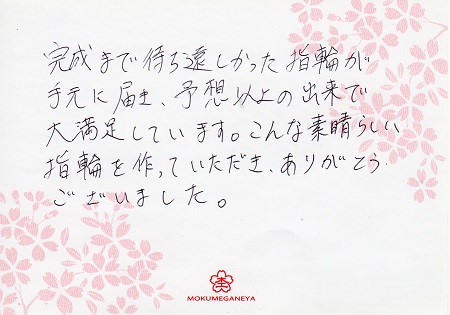 完成まで待ち遠しかった指輪が
手元に届き、予想以上の出来で
大満足しています。こんな素晴らしい
指輪を作っていただき、ありがとう
ございました。
MOKUMEGANEYA